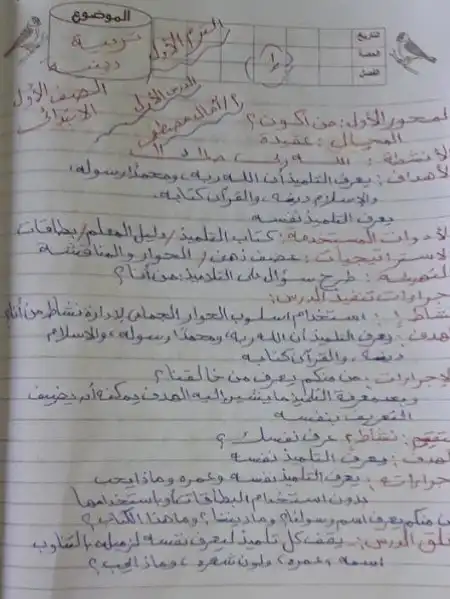 الموضوع
تربية
دينية
التاريخ
الحصة
الفصل
١
الترم الأول
الدرس الأول
أ/ خالد مصطفى
الصف الأول
الابتدائى
المحور الأول: من أكون؟
المجال: عقيدة
الأنشطة: الله ربى
الأهداف: يعرف التلميذ أن الله ربه، ومحمدًا رسوله،
والإسلام دينه، والقرآن كتابه.
يعرف التلميذ نفسه
الأدوات المستخدمة: كتاب التلميذ/ دليل المعلم/ بطاقات
الاستراتيجيات: عصف ذهن/ الحوار والمناقشة
التهيئة: طرح سؤال على التلميذ: من أنا؟
إجراءات تنفيذ الدرس:
نشاط ١: استخدام أسلوب الحوار الجماعى لإدارة نشاط من أنا
الهدف: يعرف التلميذ أن الله ربه، ومحمدًا رسوله، والإسلام
دينه، والقرآن كتابه
الإجراءات: من منكم يعرف من خالقنا؟
وبعد معرفة التلميذ ما يشير إليه الهدف يمكنه أن يضيف
التعريف بنفسه
تقييم: نشاط ٢ عرف نفسك؟
الهدف: يعرف التلميذ نفسه
إجراءات: يعرف التلميذ نفسه وعمره وماذا يحب
بدون استخدام البطاقات أو باستخدامها
من منكم يعرف اسم رسولنا؟ وما ديننا؟ وما هذا الكتاب؟
غلق الدرس: يقف كل تلميذ ليعرف نفسه لزميله بالتناوب
اسمه، وعمره، ولون شعره، وماذا يحب؟